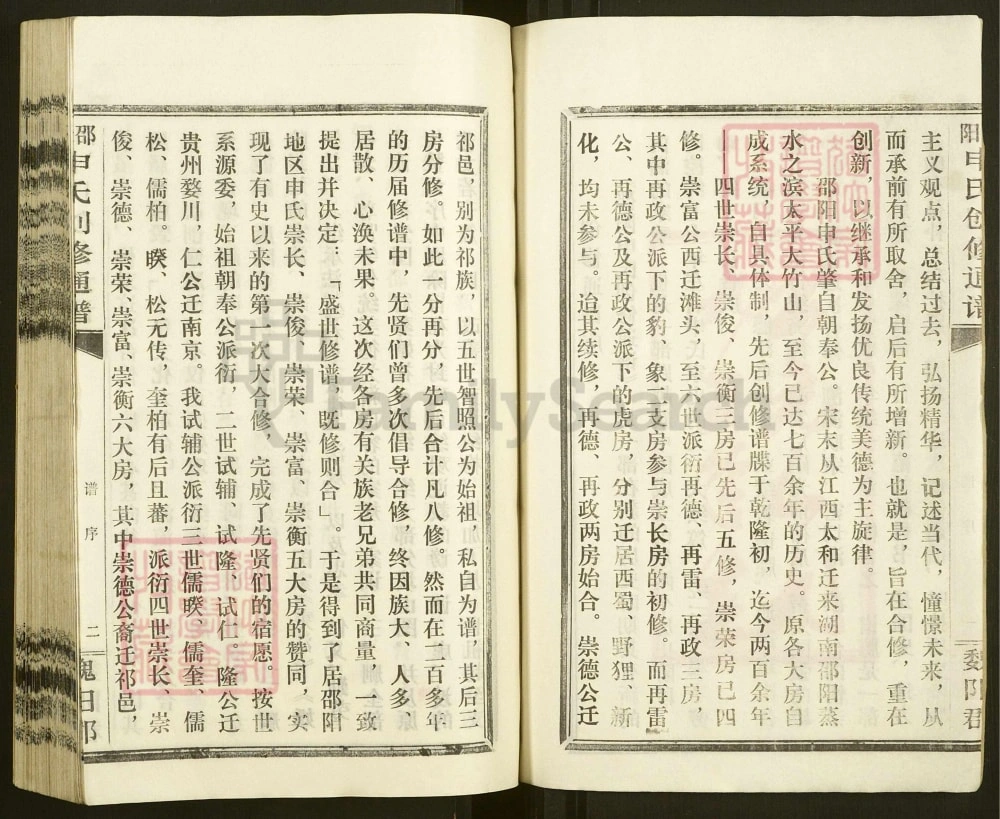 阳申氏创修通谱
魏阳君
主义观点，总结过去，弘扬精华，记述当代，憧憬未来，从
而承前有所取舍，启后有所增新。也就是，旨在合修，重在
创新，以继承和发扬优良传统美德为主旋律。
邵阳申氏肇自朝奉公。宋末从江西太和迁来湖南邵阳蒸
水之滨太平大竹山，至今已达七百余年的历史。原各大房自
成系统，自具体制，先后创修谱牒于乾隆初，迄今两百余年
——四世崇长、崇俊、崇衡三房已先后五修，崇荣房已四
修。崇富公西迁滩头，至六世派衍再德、再雷、再政三房，
其中再政公派下的豹、象二支房参与崇长房的初修。而再雷
公、再德公及再政公派下的虎房，分别迁居西蜀、野狸、新
化，均未参与。迨其续修，再德、再政两房始合。崇德公迁
祁邑，别为祁族，以五世智照公为始祖，私自为谱，其后三
房分修。如此一分再分，先后合计凡八修。然而在二百多年
的历届修谱中，先贤们曾多次倡导合修，终因族大、人多、
居散、心涣未果。这次经各房有关族老兄弟共同商量，一致
提出并决定：「盛世修谱，既修则合」。于是得到了居邵阳
地区申氏崇长、崇俊、崇荣、崇富、崇衡五大房的赞同，实
现了有史以来的第一次大合修，完成了先贤们的宿愿。按世
系源委，始祖朝奉公派衍，二世试辅、试隆、试仁。隆公迁
贵州婺川，仁公迁南京。我试辅公派衍三世儒暌、儒奎、儒
松、儒柏。暌、松无传，奎柏有后且蕃，派衍四世崇长、崇
俊、崇德、崇荣、崇富、崇衡六大房，其中崇德公裔迁祁邑，
邵申氏创修通谱
谱序
二
魏阳郡
FamilySearch